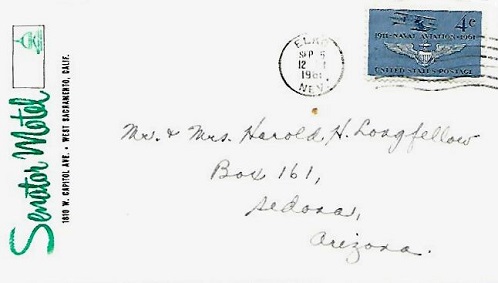 Senator Motel
1810 W. CAPITOL AVE. • WEST SACRAMENTO, CALIF.
ELKO
SEP 5
12
1961
NEV.
4¢
1911-NAVAL AVIATION-1961
UNITED STATES POSTAGE
Mr. & Mrs. Harold H. Longfellow
Box 161,
Sedona,
Arizona.